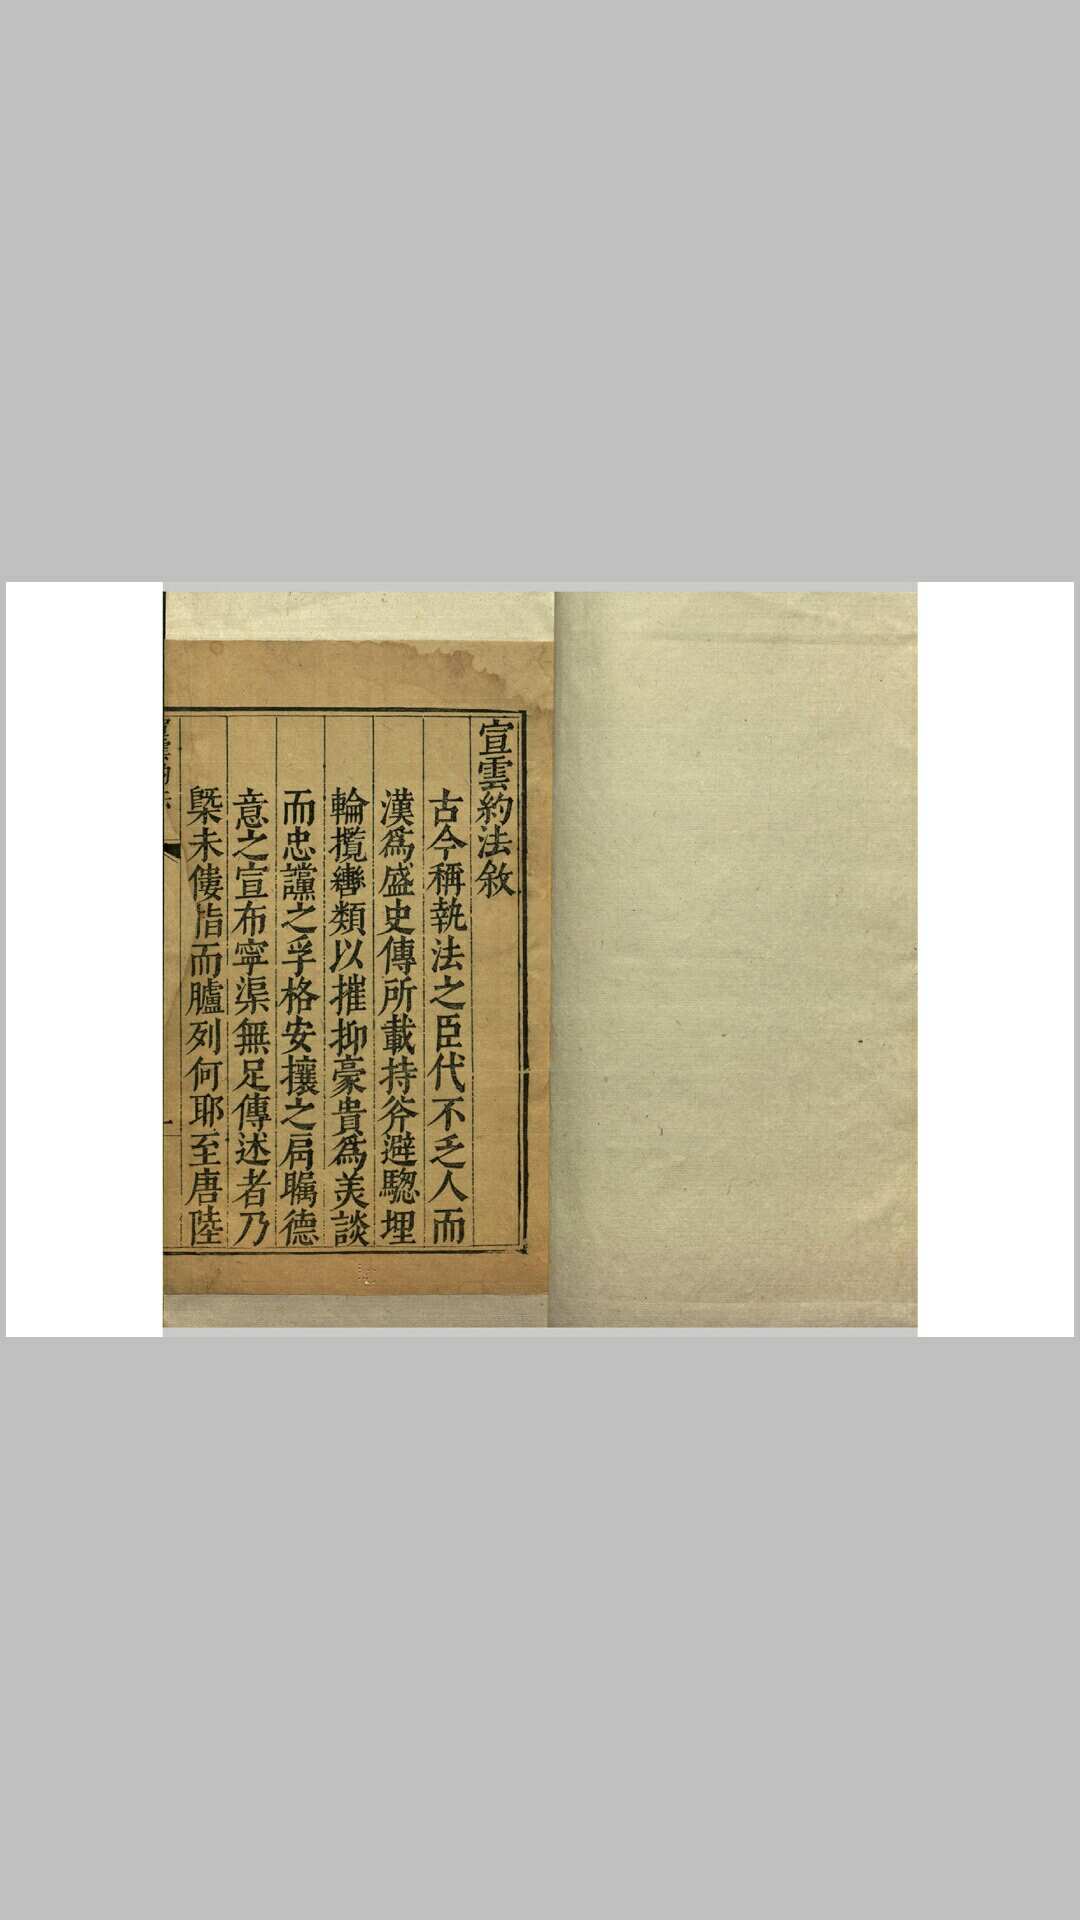 宣雲約法敘
古今稱執法之臣代不乏人而
漢爲盛史傳所載持斧避驄埋
輪攬轡類以摧抑豪貴爲美談
而忠讜之孚格安攘之扃矚德
意之宣布寧渠無足傳述者乃
槩未僂指而臚列何耶至唐陸